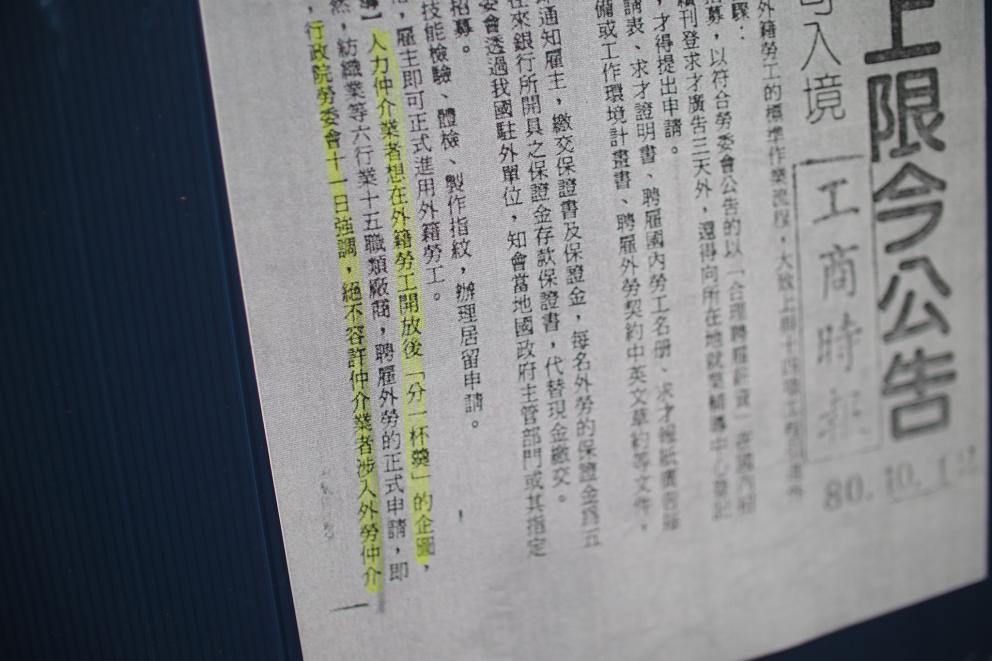 上限今公告
可入境
工商時報
80.10.1
外籍勞工的標準作業流程，大致上
驟：
招募，以符合勞委會公告的以「合理聘雇薪資」在國內
續刊登求才廣告三天外，還得向所在地就業輔導中心登記
，才得提出申請。
請表、求才證明書、聘雇國內勞工名册、求才報紙廣告
備或工作環境計畫書、聘雇外勞契約中英文草約等文件，
通知雇主，繳交保證書及保證金，每名外勞的保證金為五
往來銀行所開具之保證金存款保證書，代替現金繳交。
委會透過我國駐外單位，知會當地國政府主管部門或其指定
招募。
技能檢驗、體檢、製作指紋，辦理居留申請。
，雇主即可正式進用外籍勞工。
導】人力仲介業者想在外籍勞工開放後「分一杯羹」的企圖，
然，紡織業等六行業十五職類廠商，聘雇外勞的正式申請，即
，行政院勞委會十一日強調，絕不容許仲介業者涉入外勞仲介